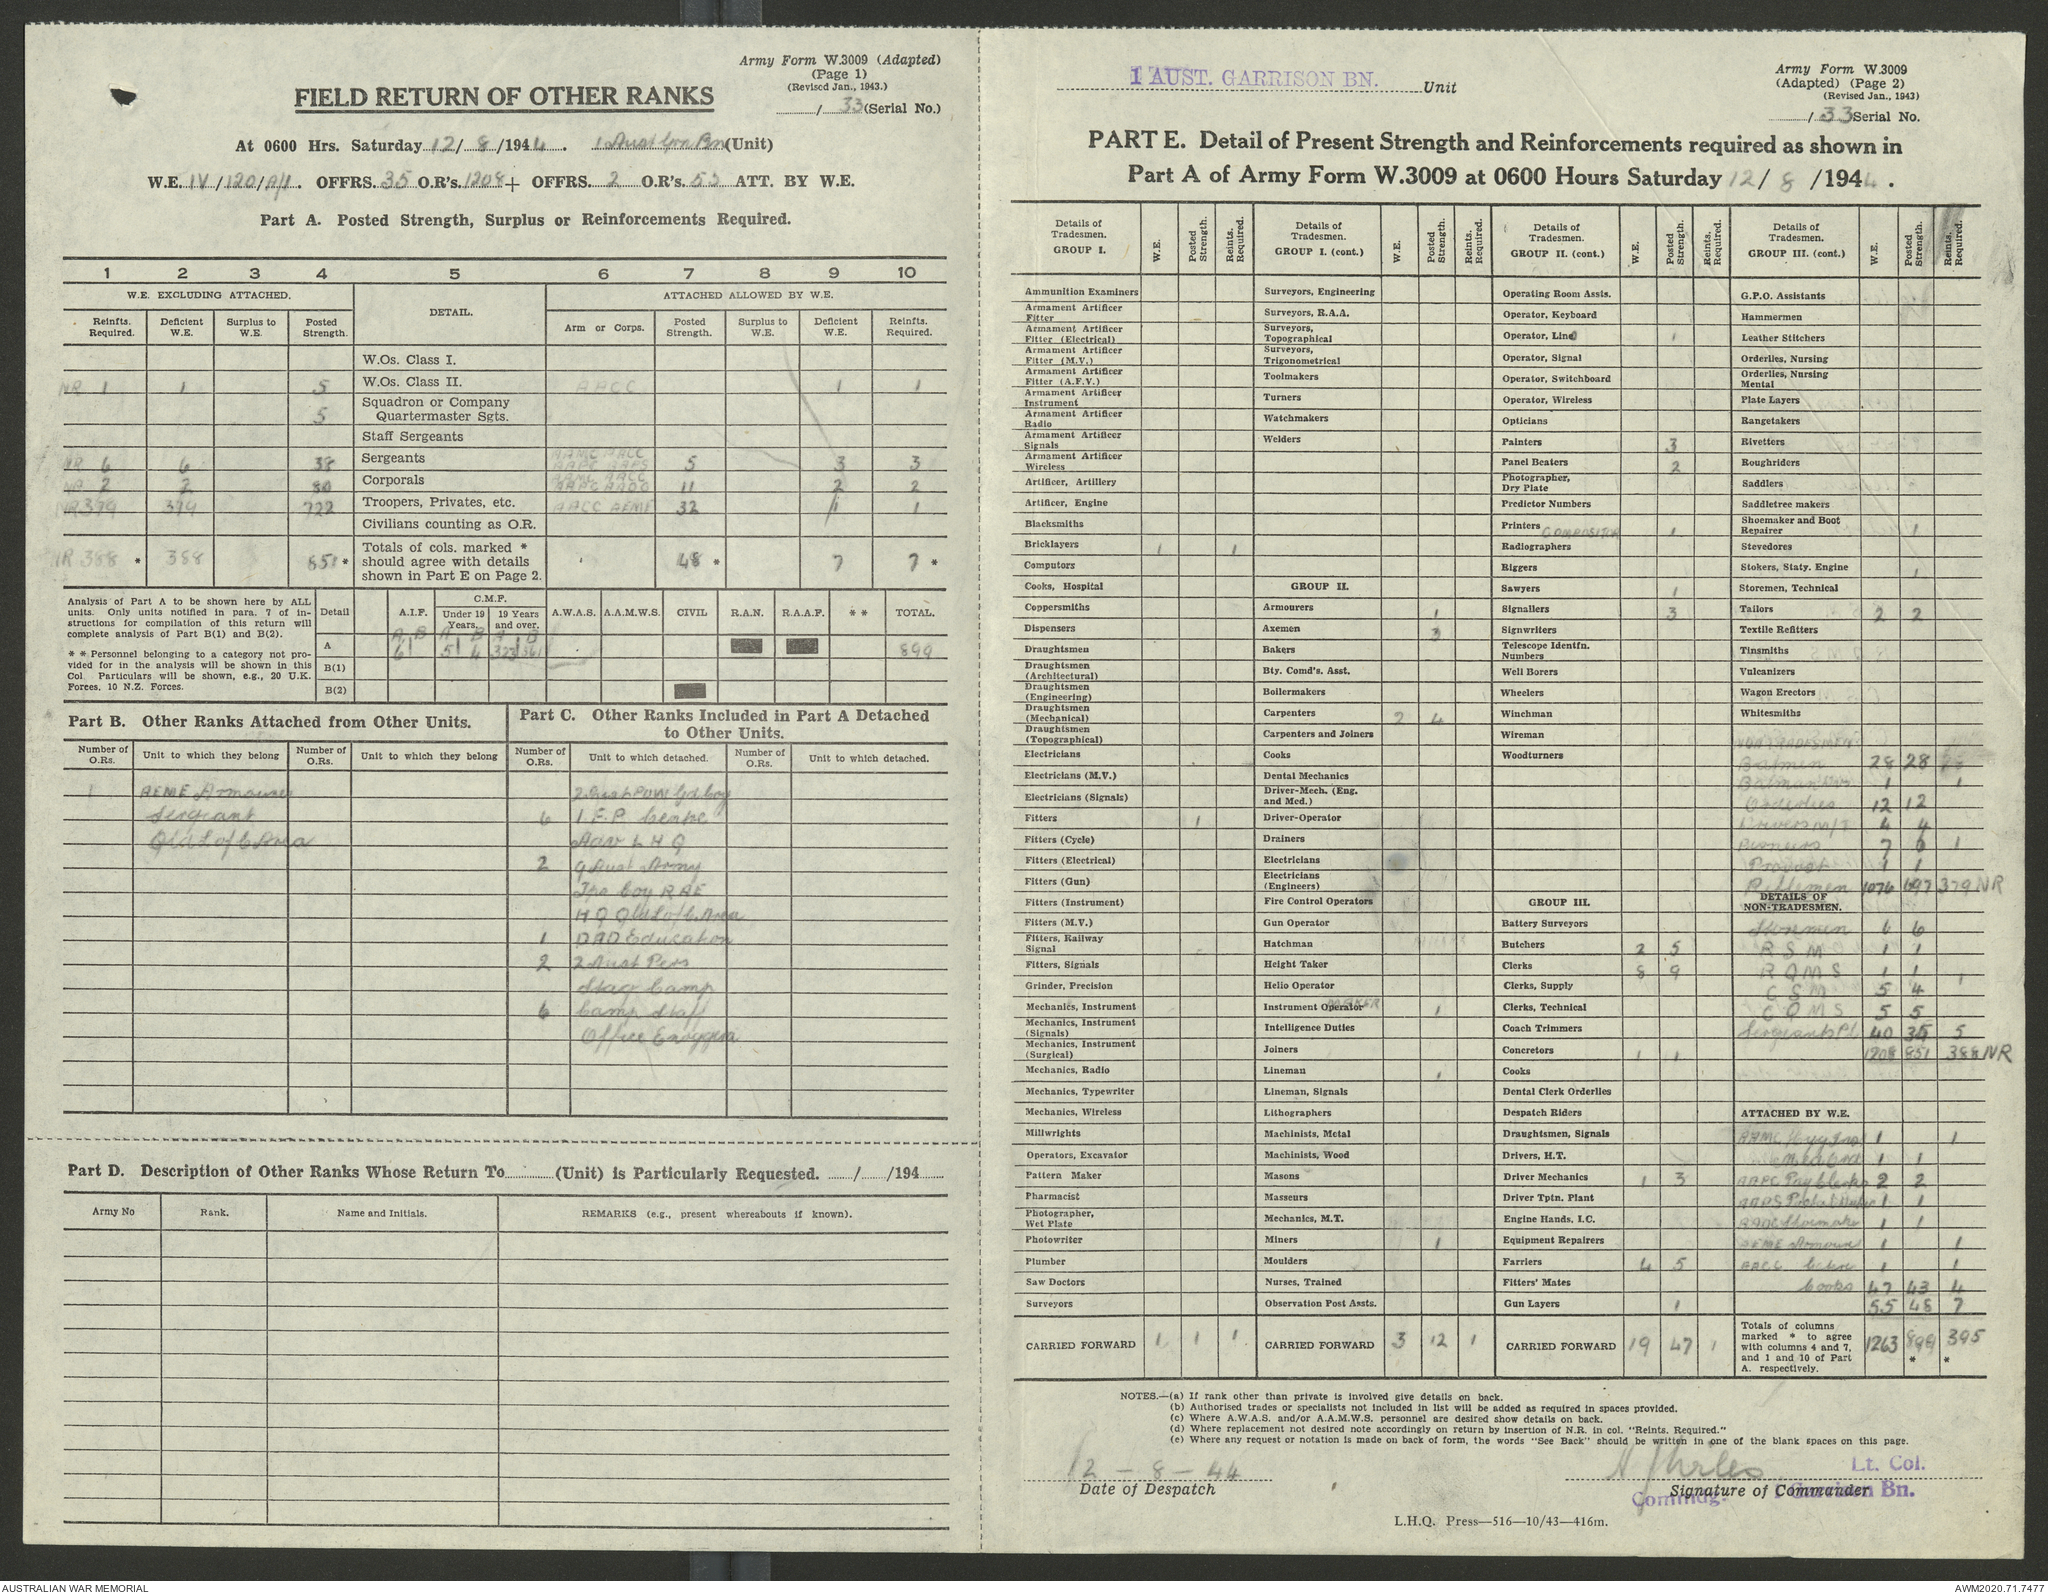 Army Form W.3009 (Adapted)
(Page 1)
(Revised Jan., 1943.)
FIELD RETURN OF OTHER RANKS
/ 33 (Serial No.)
At 0600 Hrs. Saturday 12/ 8 /1944. 1 Aust Grn Bn (Unit)
W.E. IV/120/A/1. OFFRS. 35 O.R's. 1208 + OFFRS. 2 O.R's. 55 ATT. BY W.E.
Part A. Posted Strength, Surplus or Reinforcements Required.
1 2 3 4 5 6 7 8 9 10
W.E. EXCLUDING ATTACHED. DETAIL. ATTACHED ALLOWED BY W.E.
Reinfts. Required. Deficient W.E. Surplus to W.E. Posted Strength. Arm or Corps. Posted Strength. Surplus to W.E. Deficient W.E. Reinfts. Required.
W.Os. Class I.
NR 1 1 5 W.Os. Class II. AACC 1 1
5 Squadron or Company Quartermaster Sgts.
Staff Sergeants
NR 6 6 38 Sergeants AAMC AACC AAPC AAPS 5 3 3
NR 2 2 80 Corporals AAMC AACC AAPC AAOC 11 2 2
NR 379 379 722 Troopers, Privates, etc. AACC AEME 32 1 1
Civilians counting as O.R.
NR 388 * 388 851 * Totals of cols. marked * should agree with details shown in Part E on Page 2. 48 * 7 7 *
Analysis of Part A to be shown here by ALL units. Only units notified in para. 7 of instructions for compilation of this return will complete analysis of Part B(1) and B(2).
* * Personnel belonging to a category not provided for in the analysis will be shown in this Col. Particulars will be shown, e.g., 20 U.K. Forces, 10 N.Z. Forces.
Detail A.I.F. C.M.F. Under 19 Years. 19 Years and over. A.W.A.S. A.A.M.W.S. CIVIL R.A.N. R.A.A.F. * * TOTAL.
A B A B A B
A 6 5 4 323 561 899
B(1)
B(2)
Part B. Other Ranks Attached from Other Units.
Number of O.Rs. Unit to which they belong Number of O.Rs. Unit to which they belong
1 AEME Armourer
Sergeant
Qld L of C Area
Part C. Other Ranks Included in Part A Detached to Other Units.
Number of O.Rs. Unit to which detached. Number of O.Rs. Unit to which detached.
2 Aust POW Gd Coy
6 1.E.P. Centre
Adv L H Q
2 9 Aust Army
Tps Coy RAE
H Q Qld L of C Area
1 DAD Education
2 2 Aust Pers
Stag Camp
6 Camp Staff
Office Enoggera
Part D. Description of Other Ranks Whose Return To (Unit) is Particularly Requested. / /194
Army No Rank. Name and Initials. REMARKS (e.g., present whereabouts if known).
1 AUST. GARRISON BN. Unit
Army Form W.3009
(Adapted) (Page 2)
(Revised Jan., 1943)
/ 33 Serial No.
PART E. Detail of Present Strength and Reinforcements required as shown in
Part A of Army Form W.3009 at 0600 Hours Saturday 12/ 8 /1944.
Details of Tradesmen. GROUP I. W.E. Posted Strength. Reints. Required.
Ammunition Examiners
Armament Artificer Fitter
Armament Artificer Fitter (Electrical)
Armament Artificer Fitter (M.V.)
Armament Artificer Fitter (A.F.V.)
Armament Artificer Instrument
Armament Artificer Radio
Armament Artificer Signals
Armament Artificer Wireless
Artificer, Artillery
Artificer, Engine
Blacksmiths
Bricklayers 1 1
Computors
Cooks, Hospital
Coppersmiths
Dispensers
Draughtsmen
Draughtsmen (Architectural)
Draughtsmen (Engineering)
Draughtsmen (Mechanical)
Draughtsmen (Topographical)
Electricians
Electricians (M.V.)
Electricians (Signals)
Fitters 1
Fitters (Cycle)
Fitters (Electrical)
Fitters (Gun)
Fitters (Instrument)
Fitters (M.V.)
Fitters, Railway Signal
Fitters, Signals
Grinder, Precision
Mechanics, Instrument
Mechanics, Instrument (Signals)
Mechanics, Instrument (Surgical)
Mechanics, Radio
Mechanics, Typewriter
Mechanics, Wireless
Millwrights
Operators, Excavator
Pattern Maker
Pharmacist
Photographer, Wet Plate
Photowriter
Plumber
Saw Doctors
Surveyors
CARRIED FORWARD 1 1 1
Details of Tradesmen. GROUP I. (cont.) W.E. Posted Strength. Reints. Required.
Surveyors, Engineering
Surveyors, R.A.A.
Surveyors, Topographical
Surveyors, Trigonometrical
Toolmakers
Turners
Watchmakers
Welders
GROUP II.
Armourers 1
Axemen 3
Bakers
Bty. Comd's. Asst.
Boilermakers
Carpenters 2 4
Carpenters and Joiners
Cooks
Dental Mechanics
Driver-Mech. (Eng. and Med.)
Driver-Operator
Drainers
Electricians
Electricians (Engineers)
Fire Control Operators
Gun Operator
Hatchman
Height Taker
Helio Operator
Instrument Operator MAKER 1
Intelligence Duties
Joiners
Lineman 1
Lineman, Signals
Lithographers
Machinists, Metal
Machinists, Wood
Masons
Masseurs
Mechanics, M.T.
Miners 1
Moulders
Nurses, Trained
Observation Post Assts.
CARRIED FORWARD 3 12 1
Details of Tradesmen. GROUP II. (cont.) W.E. Posted Strength. Reints. Required.
Operating Room Assis.
Operator, Keyboard
Operator, Line 1
Operator, Signal
Operator, Switchboard
Operator, Wireless
Opticians
Painters 3
Panel Beaters 2
Photographer, Dry Plate
Predictor Numbers
Printers COMPOSITOR 1
Radiographers
Riggers
Sawyers 1
Signallers 3
Signwriters
Telescope Identfn. Numbers
Well Borers
Wheelers
Winchman
Wireman
Woodturners
GROUP III.
Battery Surveyors
Butchers 2 5
Clerks 8 9
Clerks, Supply
Clerks, Technical
Coach Trimmers
Concretors 1 1
Cooks
Dental Clerk Orderlies
Despatch Riders
Draughtsmen, Signals
Drivers, H.T.
Driver Mechanics 1 3
Driver Tptn. Plant
Engine Hands, I.C.
Equipment Repairers
Farriers 4 5
Fitters' Mates
Gun Layers 1
CARRIED FORWARD 19 47 1
Details of Tradesmen. GROUP III. (cont.) W.E. Posted Strength. Reints. Required.
G.P.O. Assistants
Hammermen
Leather Stitchers
Orderlies, Nursing
Orderlies, Nursing Mental
Plate Layers
Rangetakers
Rivetters
Roughriders
Saddlers
Saddletree makers
Shoemaker and Boot Repairer 1
Stevedores
Stokers, Staty. Engine 1
Storemen, Technical
Tailors 2 2
Textile Refitters
Tinsmiths
Vulcanizers
Wagon Erectors
Whitesmiths
NON TRADESMEN
Batmen 28 28
Batman Dvr 1 1
Orderlies 12 12
Drivers M/T 4 4
Pioneers 7 6 1
Provost 1 1
Riflemen 1076 697 379 NR
DETAILS OF NON-TRADESMEN.
Storemen 6 6
R S M 1 1
R Q M S 1 1
C S M 5 4 1
C Q M S 5 5
Sergeants Pl 40 35 5
1208 851 388 NR
ATTACHED BY W.E.
AAMC Hyg 1 1
Med Ord 1 1
AAPC Pay Clerks 2 2
AAPS Postal 1 1
AAOC Shoemaker 1 1
AEME Armourer 1 1
AACC 1 1
Cooks 47 43 4
55 48 7
Totals of columns marked * to agree with columns 4 and 7, and 1 and 10 of Part A. respectively. 1263 899 * 395 *
NOTES.—(a) If rank other than private is involved give details on back.
(b) Authorised trades or specialists not included in list will be added as required in spaces provided.
(c) Where A.W.A.S. and/or A.A.M.W.S. personnel are desired show details on back.
(d) Where replacement not desired note accordingly on return by insertion of N.R. in col. "Reints. Required."
(e) Where any request or notation is made on back of form, the words "See Back" should be written in one of the blank spaces on this page.
12 - 8 - 44
Date of Despatch
Lt. Col.
Signature of Commander
Commdg. 1 Garrison Bn.
L.H.Q. Press—516—10/43—416m.
AUSTRALIAN WAR MEMORIAL
AWM2020.71.7477